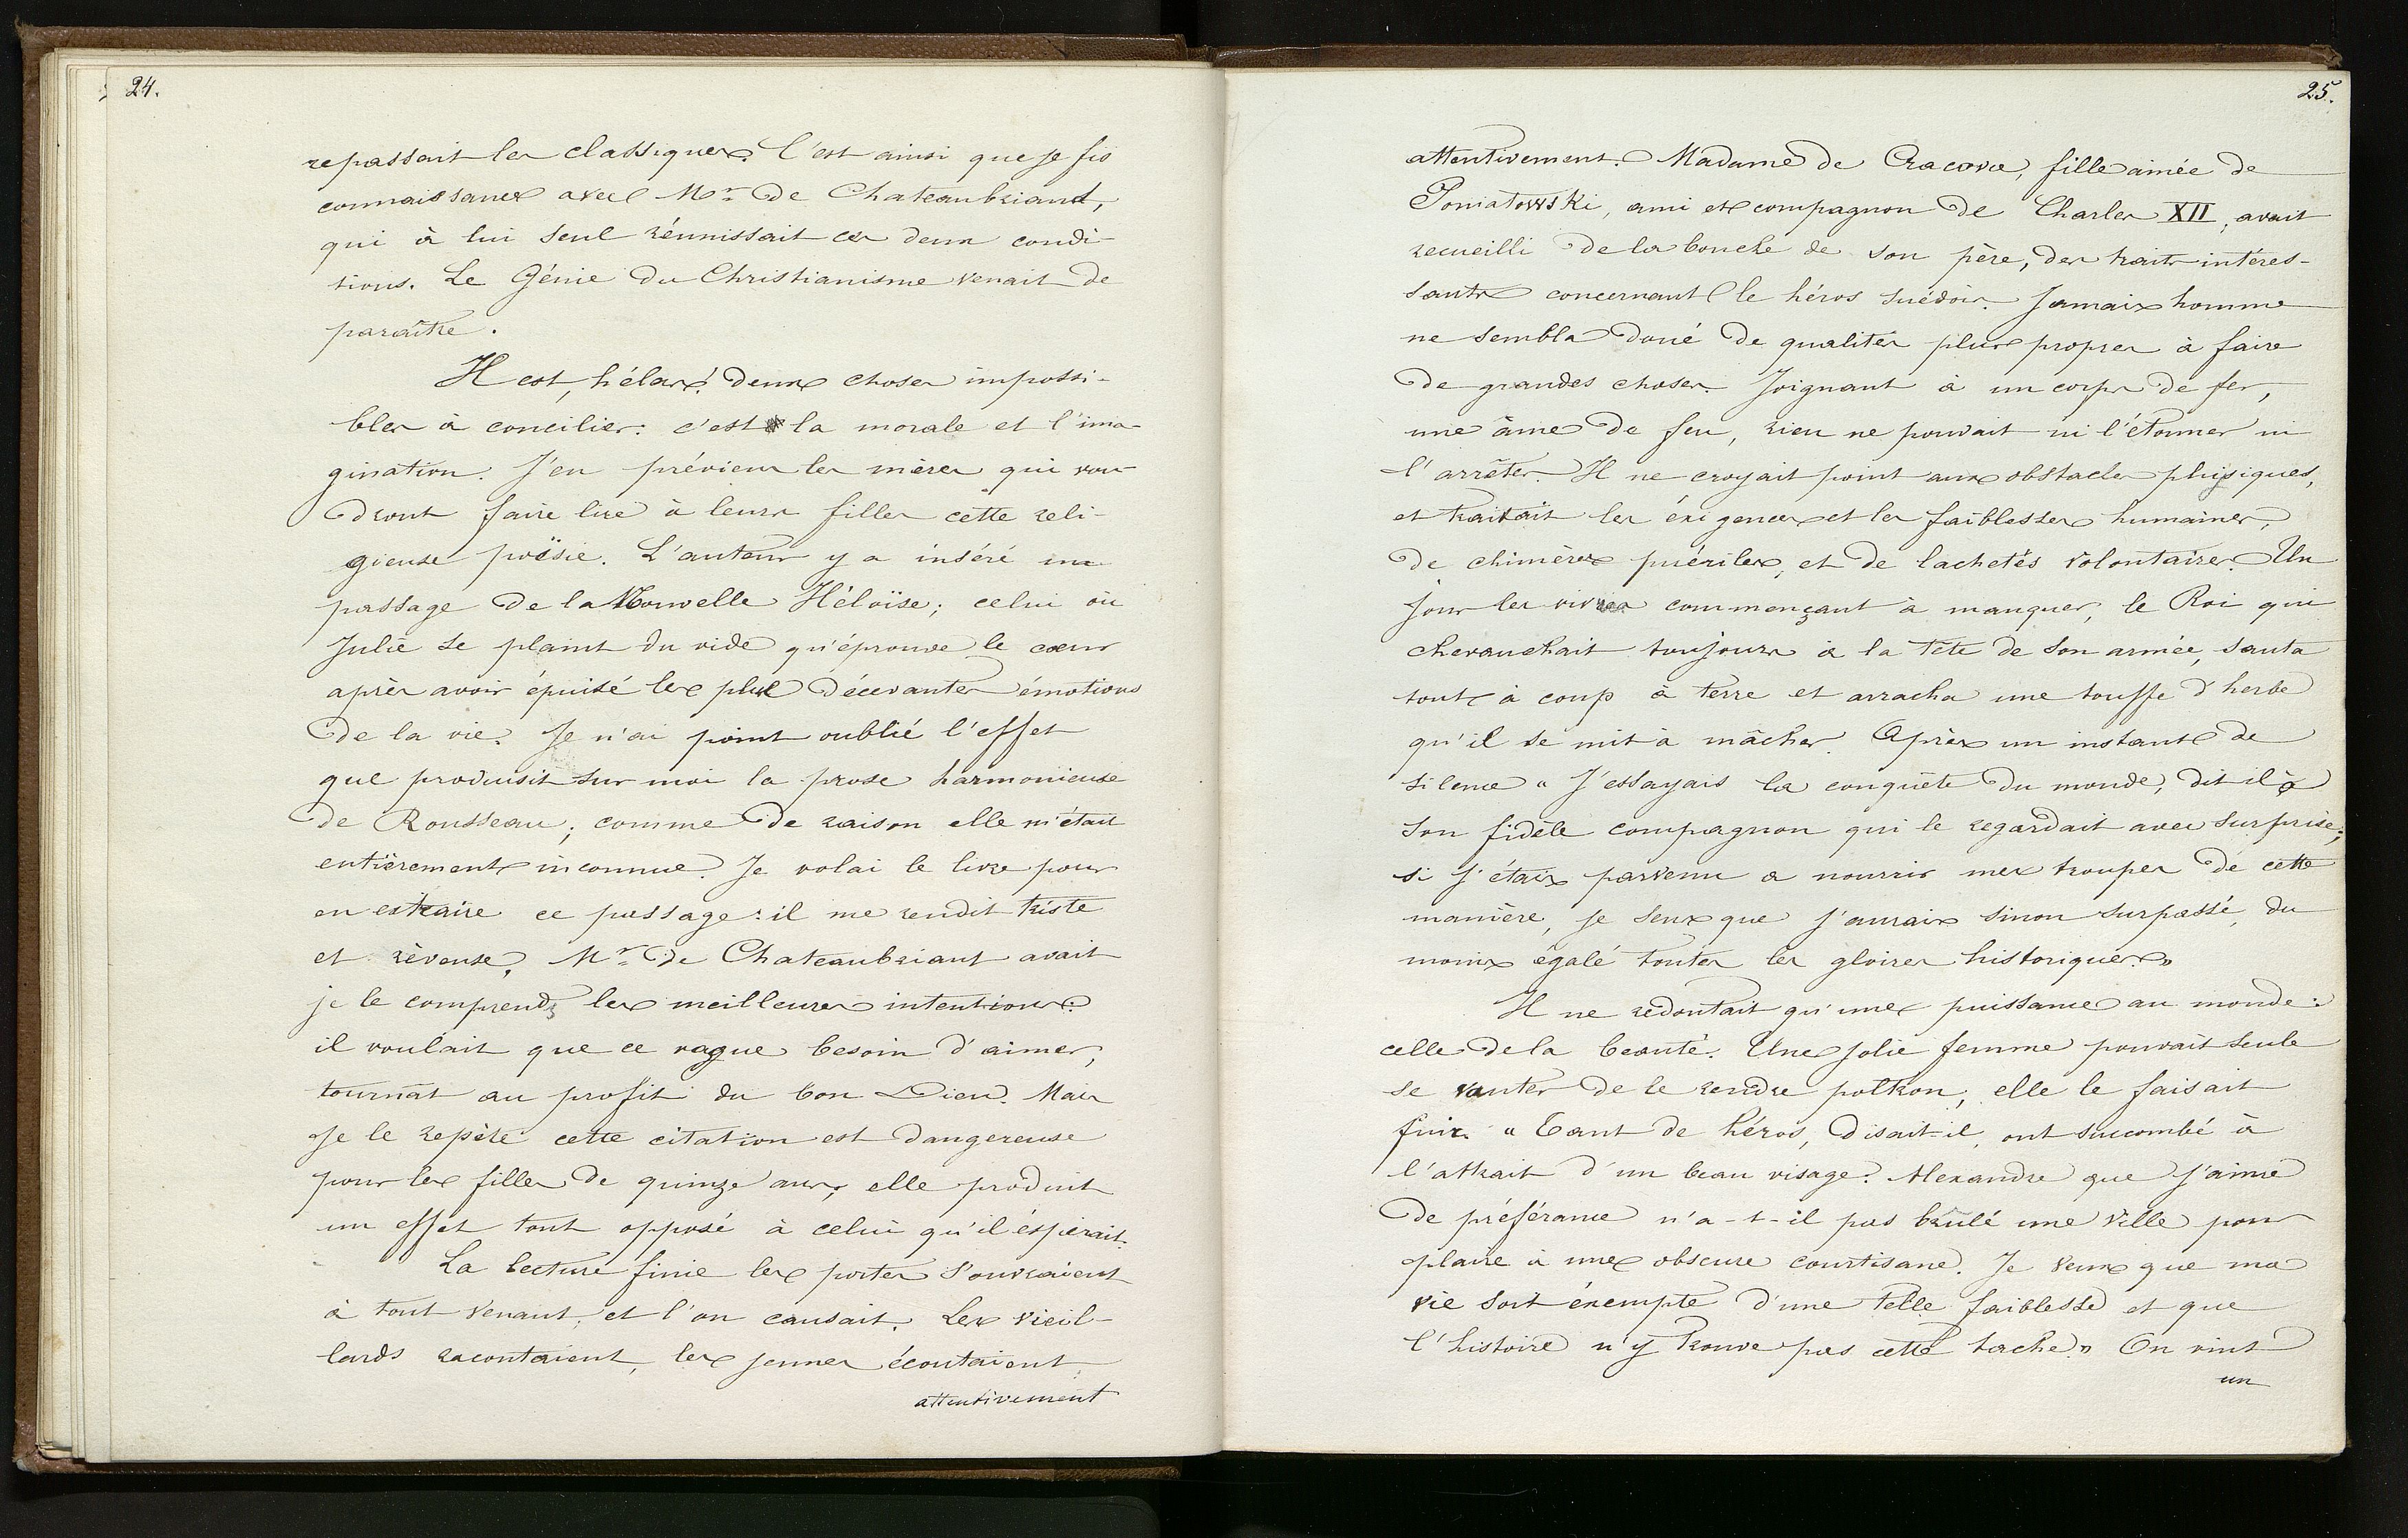 24.
repassait les classiques. C'est ainsi que je fis
connaissance avec Mr. de Chateaubriand,
qui à lui seul réunissait ces deux condi-
tions. Le Génie du Christianisme venait de
paraître.
Il est, hélas! deux choses impossi-
bles à concilier: c'est la morale et l'ima-
gination. J'en préviens les mères qui vou-
dront faire lire à leurs filles cette reli-
gieuse poësie. L'auteur y a inséré un
passage de la Nouvelle Héloïse; celui où
Julie se plaint du vide qu'éprouve le cœur
après avoir épuisé les plus décevantes émotions
de la vie. Je n'ai point oublié l'effet
que produisit sur moi la prose harmonieuse
de Rousseau; comme de raison elle m'était
entièrement inconnue. Je volai le livre pour
en extraire ce passage: il me rendit triste
et rèveuse. Mr. de Chateaubriant avait
je le comprends les meilleures intentions:
il voulait que ce vague besoin d'aimer,
tournât au profit du bon Dieu. Mais
je le repète cette citation est dangereuse
pour les filles de quinze ans, elle produit
un effet tout opposé à celui qu'il éspérait.
La lecture finie les portes s'ouvraient
à tout venant, et l'on causait. Les vieil-
lards racontaient, les jeunes écoutaient
attentivement
25.
attentivement. Madame de Cracovie, fille ainée de
Poniatowski, ami et compagnon de Charles XII, avait
recueilli de la bouche de son père, des traits intéres-
sants concernant le héros suédois. Jamais homme
ne sembla doué de qualités plus propres à faire
de grandes choses. Joignant à un corps de fer,
une âme de feu, rien ne pouvait ni l'étonner ni
l'arrêter. Il ne croyait point aux obstacles physiques,
et traitait les éxigences et les faiblesses humaines,
de chimères puériles, et de lachetés volontaires. Un
jour les vivres commençant à manquer, le Roi qui
chevauchait toujours à la tête de son armée, sauta
tout à coup à terre et arracha une touffe d'herbe
qu'il se mit à mâcher. Après un instant de
silence "J'essayais la conquête du monde, dit il à
son fidèle compagnon qui le regardait avec surprise;
si j'étais parvenu a nourrir mes troupes de cette
manière, je sens que j'aurais sinon surpassé, du
moins égalé toutes les gloires historiques."
Il ne redoutait qu'une puissance au monde:
celle de la beauté. Une jolie femme pouvait seule
se vanter de le rendre poltron, elle le faisait
fuir. "Tant de héros, disait-il, ont sucombé à
l'attrait d'un beau visage? Alexandre que j'aime
de préférance n'a-t-il pas brulé une ville pour
plaire à une obscure courtisane. Je veux que ma
vie soit éxempte d'une telle faiblesse et que
l'histoire n'y trouve pas cette tache." On vint
un